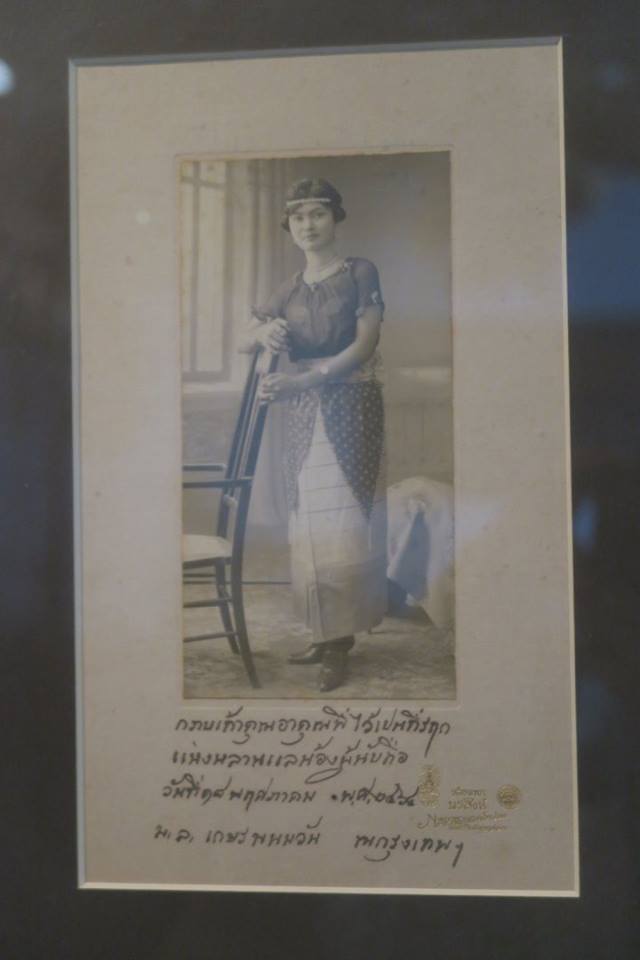 กราบเท้าคุณอาคุณพี่ ไว้เปนที่รฦก
แห่งหลานแลน้องผู้นับถือ
วันที่ พฤศภาคม พ,ศ,
ม,ล, เกษร พนมวัน ณกรุงเทพฯ
นรสิงห์